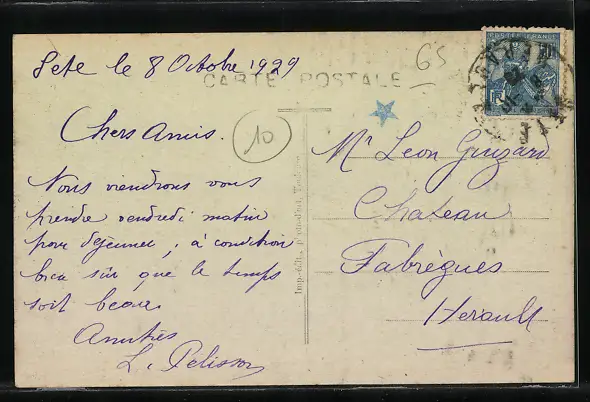 Sete le 8 Octobre 1929
65
CARTE POSTALE
POSTES FRANCE
Chers Amis.
10
Nous viendrons vous
prendre vendredi matin
pour déjeuner, à condition
bien sûr que le temps
soit beau.
Amitiés
L. Pelisson
Mr Leon Guizard
Chateau
Fabrègues
Herault